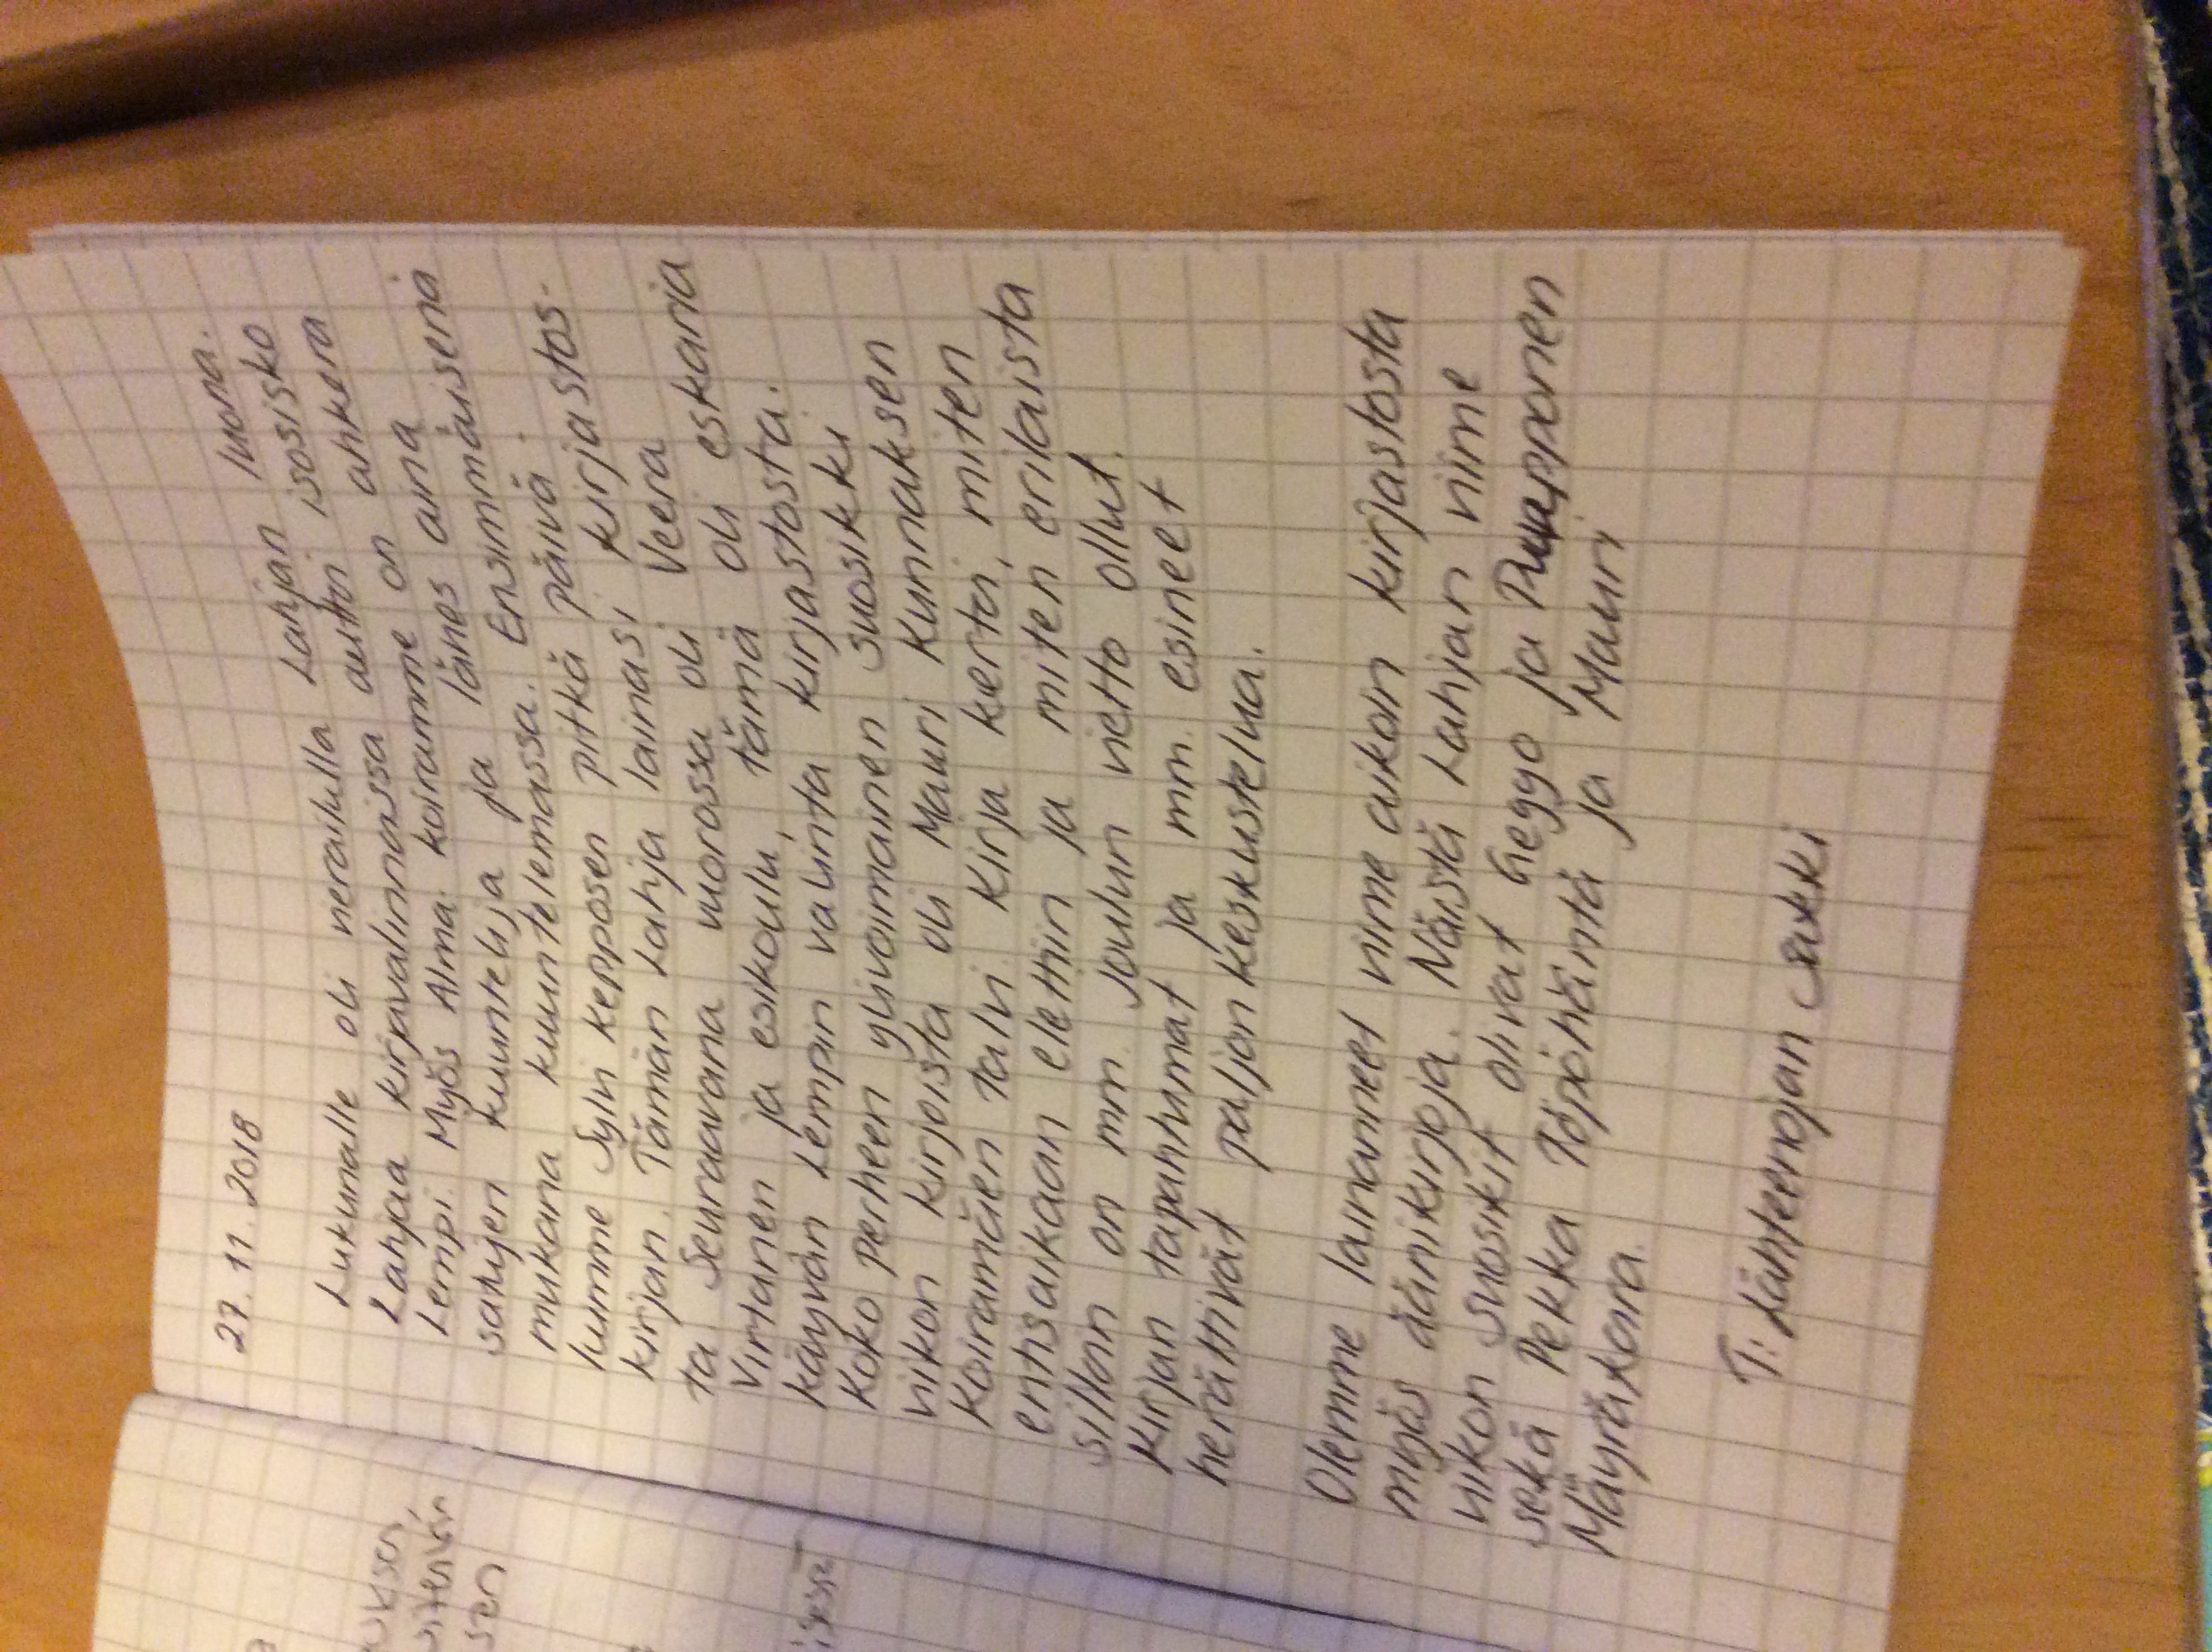 27.11.2018
Lukunalle oli vierailulla Lahjan luona.
Lahjaa kirjavalinnoissa auttoi isosisko
Lempi. Myös Alma koiramme on ahkera
satujen kuuntelija ja lähes aina
mukana kuuntelemassa. Ensimmäisenä
lumme Sylvi Kepposen pitkä päivä -
kirjan. Tämän Lahja lainasi kirjastos-
ta. Seuraavana vuorossa oli Veera
Virtanen ja esikoulu, tämä oli eskaria
käyvän Lempin valinta kirjastosta.
Koko perheen ylivoimainen suosikki
viikon kirjoista oli Mauri Kunnaksen
Koiramäen talvi. Kirja kertoi, miten
entisaikaan elettiin ja miten erilaista
silloin on mm. joulun vietto ollut.
Kirjan tapahtumat ja mm. esineet
herättivät paljon keskustelua.
Olemme lainanneet viime aikoin kirjastosta
myös äänikirjoja. Näistä Lahjan viime
viikon suosikit olivat heppo ja
sekä Pekka Töpöhäntä ja Mauri
Mäyräkoira.
T: Lähteenojan sakki
uksen
sen